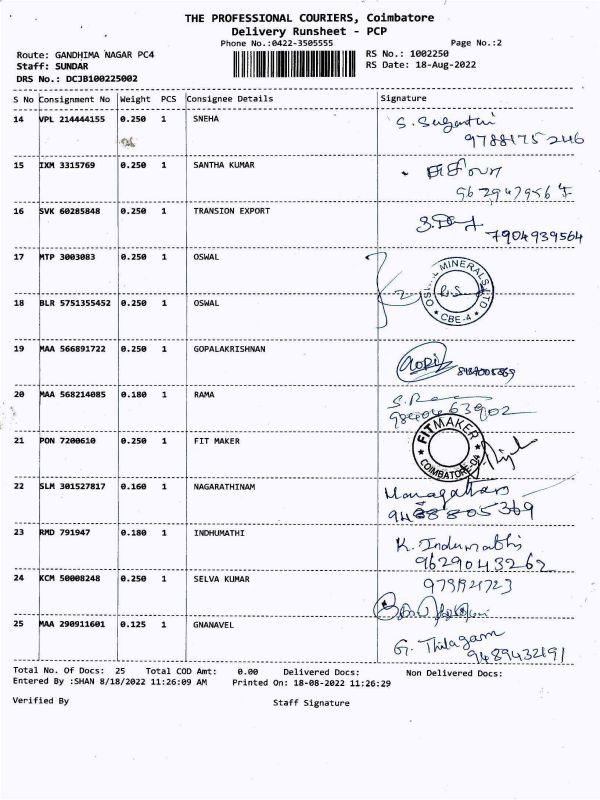 THE PROFESSIONAL COURIERS, Coimbatore
Delivery Runsheet - PCP
Phone No.:0422-3505555 Page No.:2
Route: GANDHIMA NAGAR PC4 RS No.: 1002250
Staff: SUNDAR RS Date: 18-Aug-2022
DRS No.: DCJB100225002
S No Consignment No Weight PCS Consignee Details Signature
14 VPL 214444155 0.250 1 SNEHA S. Suganthi
9788175246
15 IXM 3315769 0.250 1 SANTHA KUMAR
16 SVK 60285848 0.250 1 TRANSION EXPORT
7904939564
17 MTP 3003083 0.250 1 OSWAL
2 OSWAL MINERALS LTD CBE-4
18 BLR 5751355452 0.250 1 OSWAL
19 MAA 566891722 0.250 1 GOPALAKRISHNAN Gopi
20 MAA 568214085 0.180 1 RAMA
21 PON 7200610 0.250 1 FIT MAKER FIT MAKER COIMBATORE-04
22 SLM 301527817 0.160 1 NAGARATHINAM
23 RMD 791947 0.180 1 INDHUMATHI K. Indumathi
9629043262
24 KCM 50008248 0.250 1 SELVA KUMAR
25 MAA 290911601 0.125 1 GNANAVEL G. Thilagam
9489432191
Total No. Of Docs: 25 Total COD Amt: 0.00 Delivered Docs: Non Delivered Docs:
Entered By :SHAN 8/18/2022 11:26:09 AM Printed On: 18-08-2022 11:26:29
Verified By Staff Signature